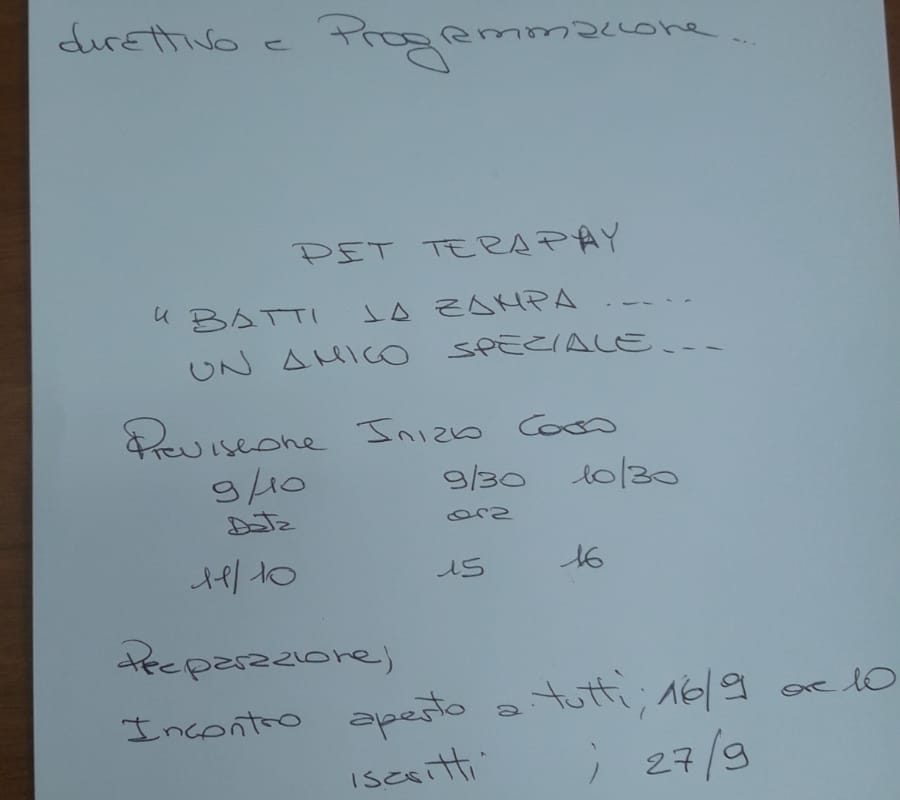 direttivo e Programmazione...
PET TERAPAY
"BATTI LA ZAMPA ......
UN AMICO SPEZIALE...
Previsione Inizio Corso
9/10 9/30 10/30
Data ora
11/10 15 16
Preparazione;
Incontro aperto a tutti; 16/9 ore 10
iscritti ; 27/9